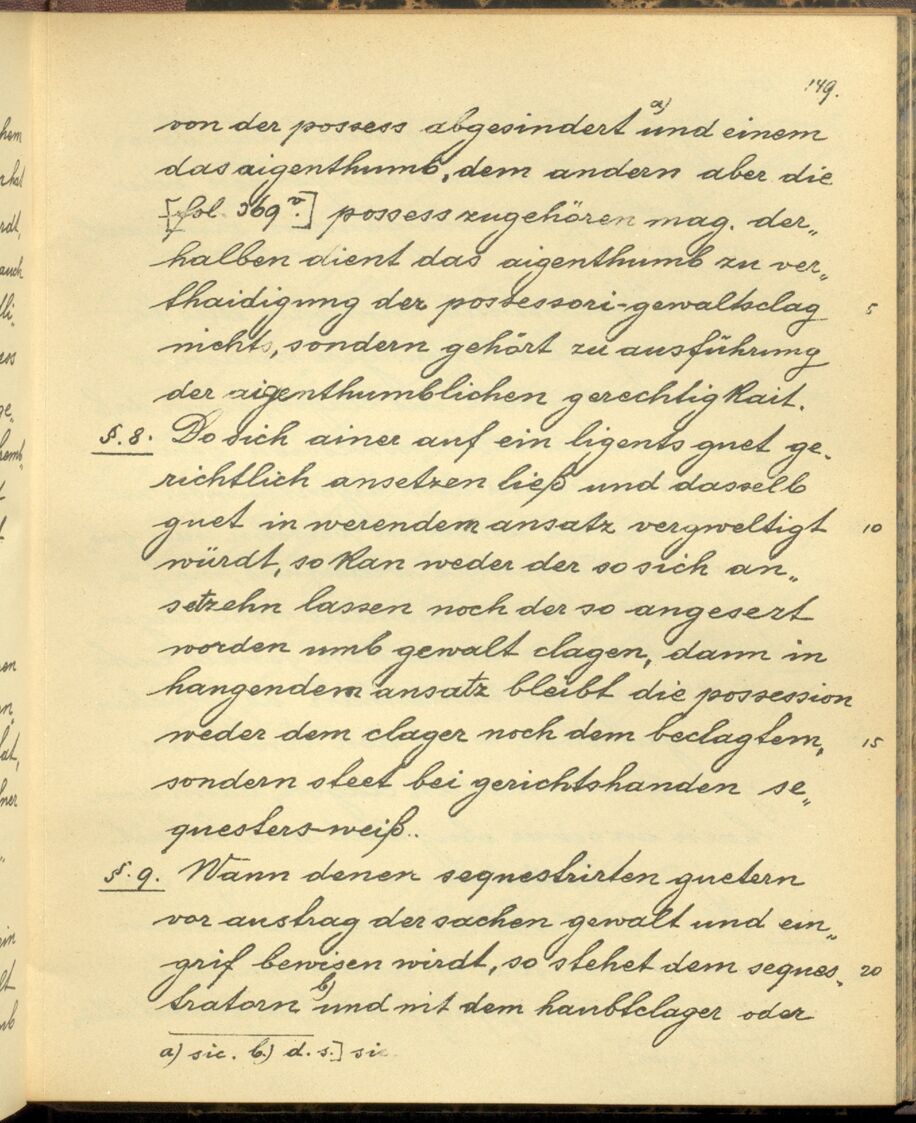 149.
von der possess abgesindert a) und einem
das aigenthumb, dem andern aber die
[fol. 369 v.] possess zugehören mag. der„
halben dient das aigenthumb zu ver„
thaidigung der possessori-gewaltsclag 5
nichts, sondern gehört zu ausführung
der aigenthumblichen gerechtigkait.
§. 8. Do sich ainer auf ein ligents guet ge„
richtlich ansetzen ließ und dasselb
guet in werendem ansatz vergweltigt 10
würdt, so kan weder der so sich an„
setzehn lassen noch der so angesezt
worden umb gewalt clagen, dann in
hangendem ansatz bleibt die possession
weder dem clager noch dem beclagtem, 15
sondern steet bei gerichtshanden se„
questers-weiß.
§. 9. Wann denen sequestrirten guetern
vor austrag der sachen gewalt und ein„
grif bewisen wirdt, so stehet dem seques„ 20
tratorn b) und nit dem haubtclager oder
a) sic. b.) d. s.] sic